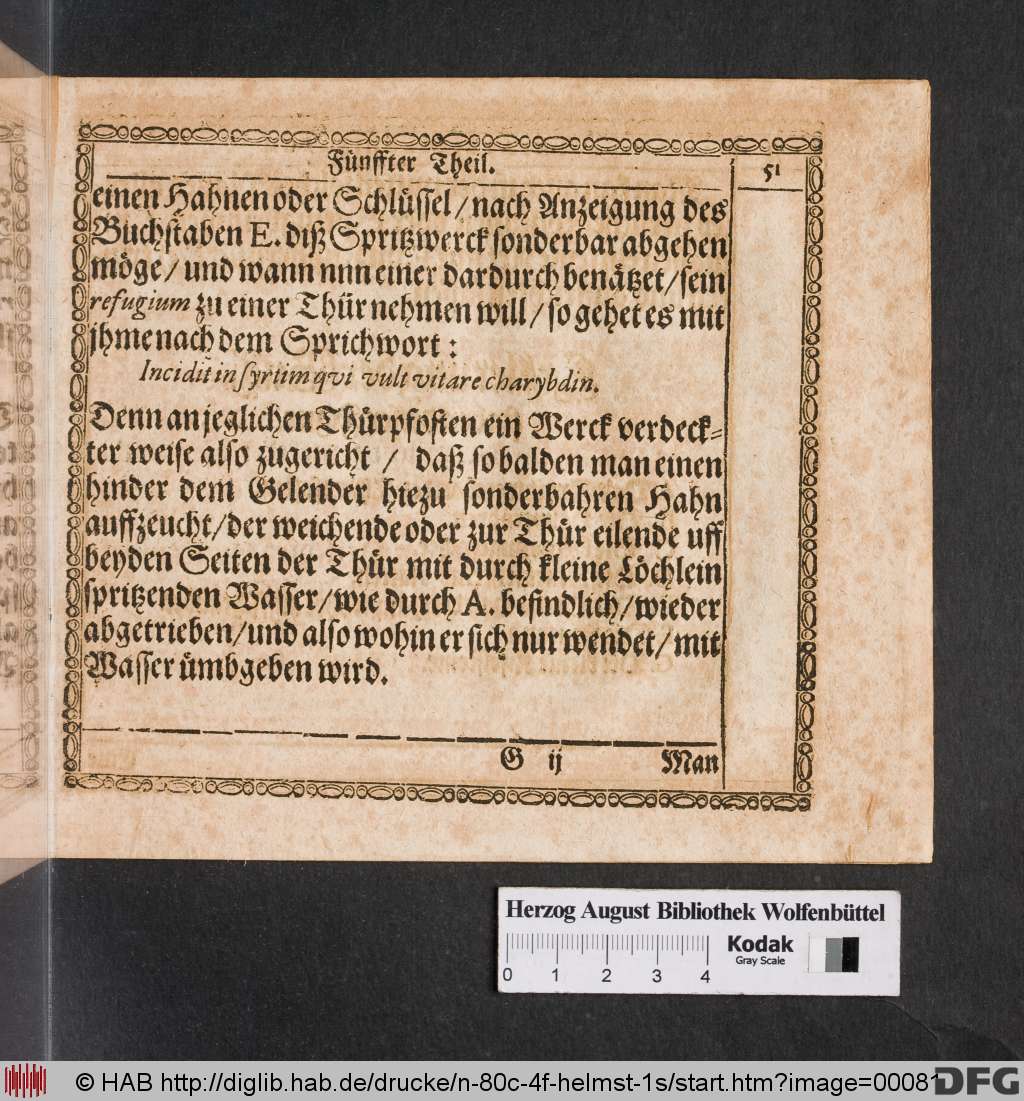 Fünffter Theil.
51
einen Hahnen oder Schlüssel / nach Anzeigung des
Buchstaben E. diß Spritzwerck sonderbar abgehen
möge / und wann nnn einer dardurch benätzet / sein
refugium zu einer Thür nehmen will / so gehet es mit
jhme nach dem Sprichwort :
Incidit in syrtim qvi vult vitare charybdin.
Denn an jeglichen Thürpfosten ein Werck verdeck-
ter weise also zugericht / daß so balden man einen
hinder dem Gelender hiezu sonderbahren Hahn
auffzeucht / der weichende oder zur Thür eilende uff
beyden Seiten der Thür mit durch kleine Löchlein
spritzenden Wasser / wie durch A. befindlich / wieder
abgetrieben / und also wohin er sich nur wendet / mit
Wasser ümbgeben wird.
G ij Man
Herzog August Bibliothek Wolfenbüttel
0 1 2 3 4
Kodak
Gray Scale
© HAB http://diglib.hab.de/drucke/n-80c-4f-helmst-1s/start.htm?image=00081
DFG